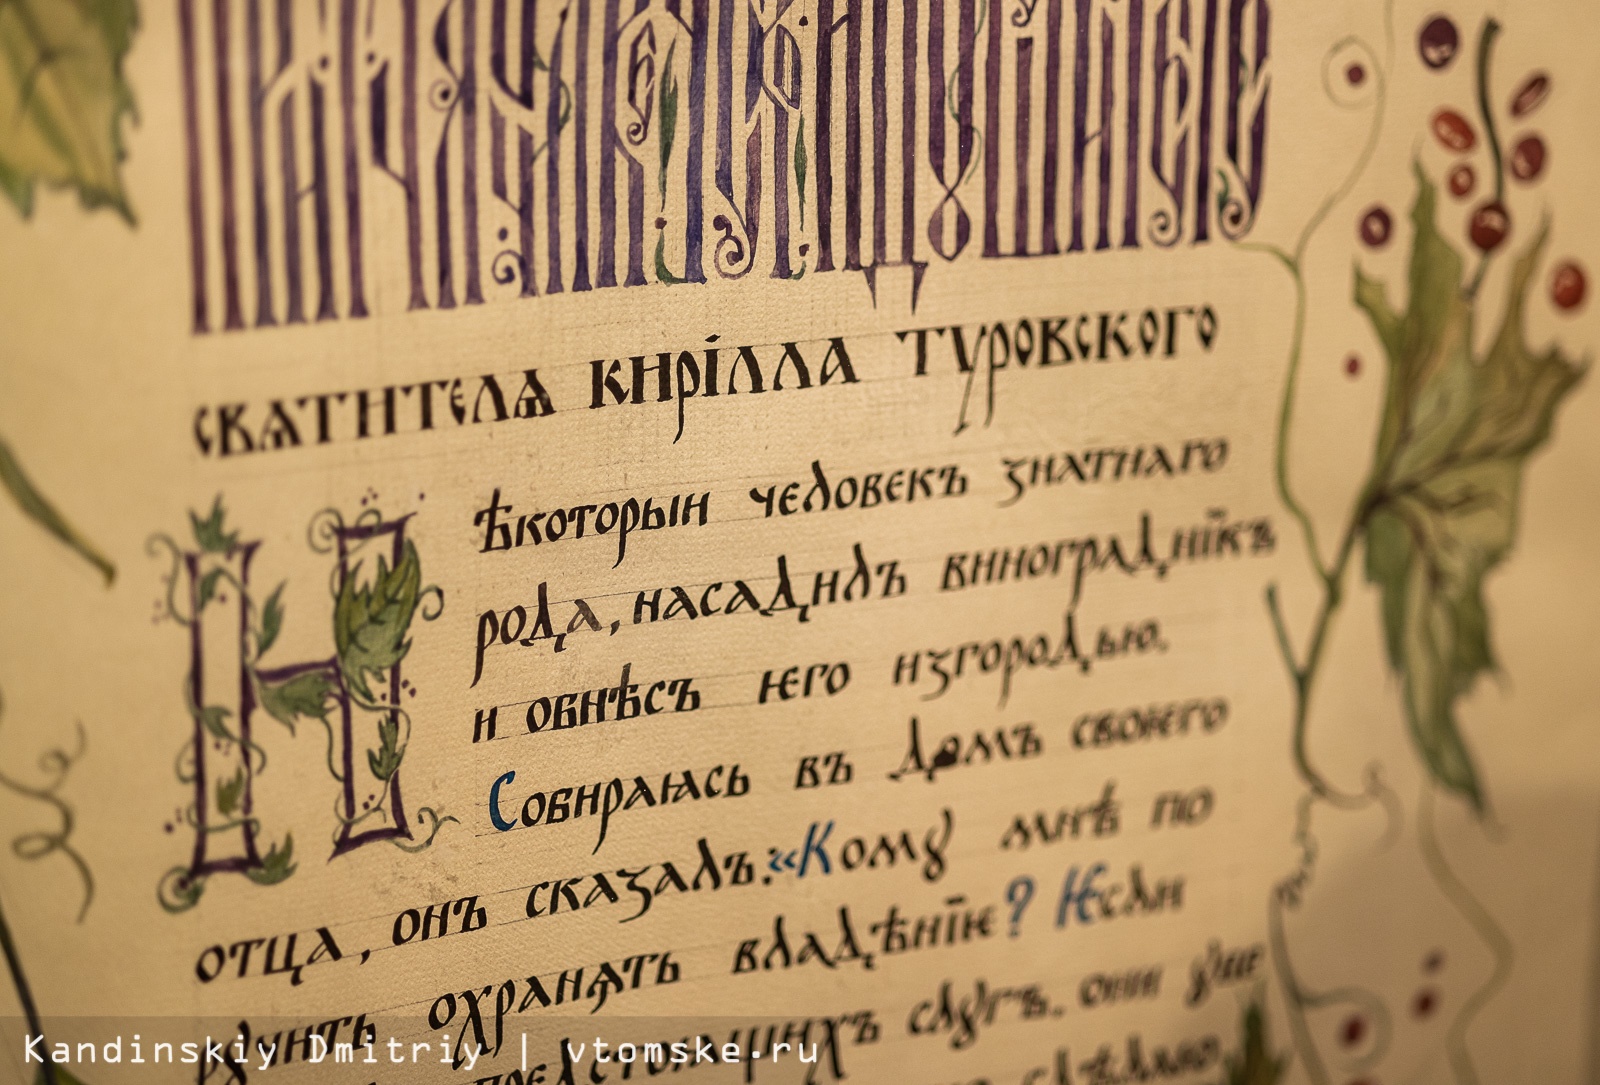 свѧтителѧ кирілла туровского
Нѣкоторыи человекъ знатнаго
рода, насадилъ виноградникъ
и обнѣсъ ѥго изгородью.
Собираꙗсь въ домъ своѥго
отца, онъ сказалъ: «Кому мнѣ по
ручить охранѧть владѣніѥ? Ѥсли
слугъ. они уже
Kandinskiy Dmitriy | vtomske.ru